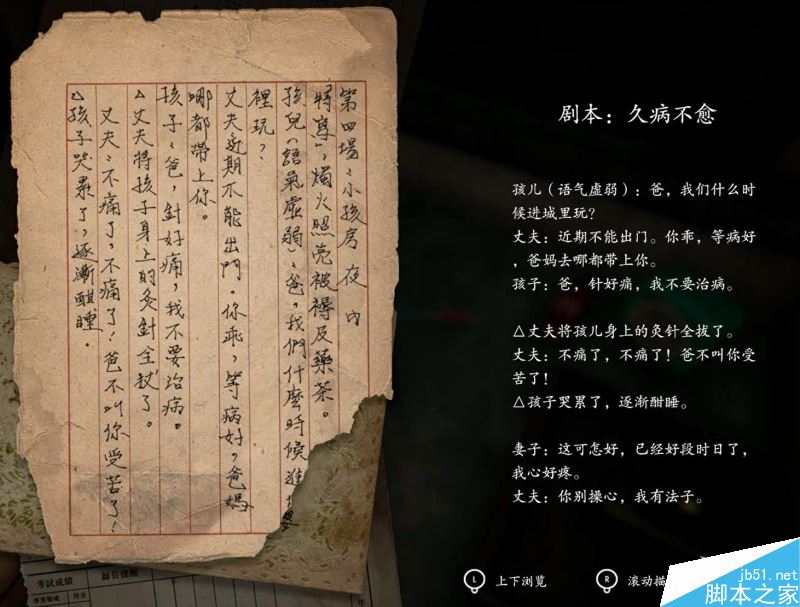 第四場：小孩房 夜 內
特寫，燭火照亮被褥及藥茶。
孩兒（語氣虛弱）：爸，我們什麼時候進城
裡玩？
丈夫：近期不能出門。你乖，等病好，爸媽
哪都帶上你。
孩子：爸，針好痛，我不要治病。
△丈夫將孩子身上的灸針全拔了。
丈夫：不痛了，不痛了！爸不叫你受苦了！
△孩子哭累了，逐漸酣睡。
考試成績
師長提醒
學習領域 得分
剧本：久病不愈
孩儿（语气虚弱）：爸，我们什么时
候进城里玩？
丈夫：近期不能出门。你乖，等病好
，爸妈去哪都带上你。
孩子：爸，针好痛，我不要治病。
△丈夫将孩儿身上的灸针全拔了。
丈夫：不痛了，不痛了！爸不叫你受
苦了！
△孩子哭累了，逐渐酣睡。
妻子：这可怎好，已经好段时日了，
我心好疼。
丈夫：你别操心，我有法子。
L 上下浏览
R 滚动描
jb51.net
脚本之家